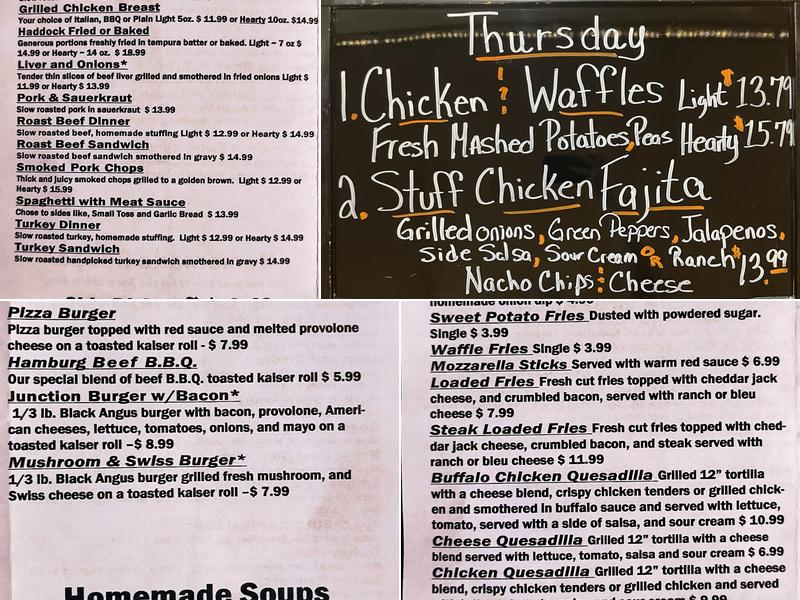 Grilled Chicken Breast
Your choice of Italian, BBQ or Plain Light 5oz. $ 11.99 or Hearty 10oz. $14.99
Haddock Fried or Baked
Generous portions freshly fried in tempura batter or baked. Light ~ 7 oz $
14.99 or Hearty ~ 14 oz. $ 18.99
Liver and Onions*
Tender thin slices of beef liver grilled and smothered in fried onions Light $
11.99 or Hearty $ 13.99
Pork & Sauerkraut
Slow roasted pork in sauerkraut $ 13.99
Roast Beef Dinner
Slow roasted beef, homemade stuffing Light $ 12.99 or Hearty $ 14.99
Roast Beef Sandwich
Slow roasted beef sandwich smothered in gravy $ 14.99
Smoked Pork Chops
Thick and juicy smoked chops grilled to a golden brown. Light $ 12.99 or
Hearty $ 15.99
Spaghetti with Meat Sauce
Chose to sides like, Small Toss and Garlic Bread $ 13.99
Turkey Dinner
Slow roasted turkey, homemade stuffing. Light $ 12.99 or Hearty $ 14.99
Turkey Sandwich
Slow roasted handpicked turkey sandwich smothered in gravy $ 14.99
Thursday
1. Chicken & Waffles Light $13.79
Fresh Mashed Potatoes, Peas Hearty $15.79
2. Stuff Chicken Fajita
Grilled onions, Green Peppers, Jalapenos,
Side Salsa, Sour Cream OR Ranch $13.99
Nacho Chips & Cheese
Pizza Burger
Pizza burger topped with red sauce and melted provolone
cheese on a toasted kaiser roll - $ 7.99
Hamburg Beef B.B.Q.
Our special blend of beef B.B.Q. toasted kaiser roll $ 5.99
Junction Burger w/Bacon*
1/3 lb. Black Angus burger with bacon, provolone, Ameri-
can cheeses, lettuce, tomatoes, onions, and mayo on a
toasted kaiser roll –$ 8.99
Mushroom & Swiss Burger*
1/3 lb. Black Angus burger grilled fresh mushroom, and
Swiss cheese on a toasted kaiser roll –$ 7.99
Homemade Soups
homemade onion dip $ 4.99
Sweet Potato Fries Dusted with powdered sugar.
Single $ 3.99
Waffle Fries Single $ 3.99
Mozzarella Sticks Served with warm red sauce $ 6.99
Loaded Fries Fresh cut fries topped with cheddar jack
cheese, and crumbled bacon, served with ranch or bleu
cheese $ 7.99
Steak Loaded Fries Fresh cut fries topped with ched-
dar jack cheese, crumbled bacon, and steak served with
ranch or bleu cheese $ 11.99
Buffalo Chicken Quesadilla Grilled 12” tortilla
with a cheese blend, crispy chicken tenders or grilled chick-
en and smothered in buffalo sauce and served with lettuce,
tomato, served with a side of salsa, and sour cream $ 10.99
Cheese Quesadilla Grilled 12” tortilla with a cheese
blend served with lettuce, tomato, salsa and sour cream $ 6.99
Chicken Quesadilla Grilled 12” tortilla with a cheese
blend, crispy chicken tenders or grilled chicken and served